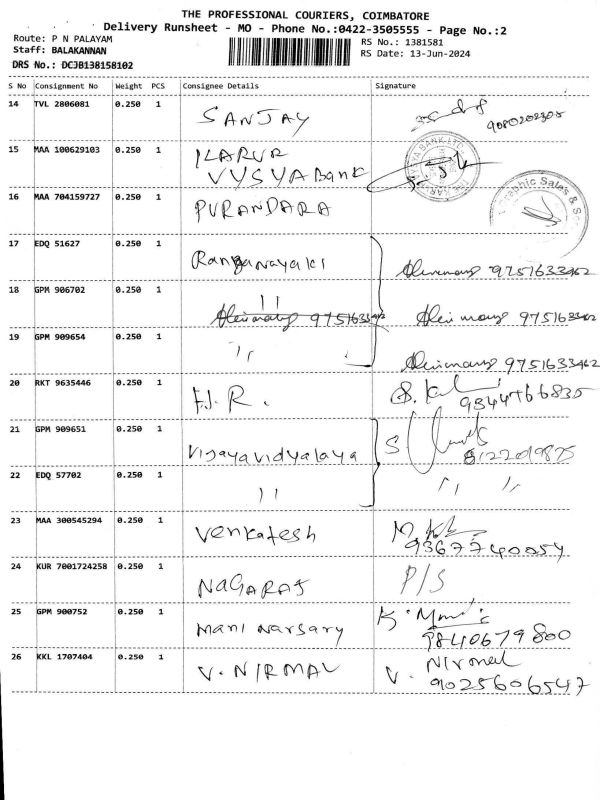 THE PROFESSIONAL COURIERS, COIMBATORE
Delivery Runsheet - MO - Phone No.:0422-3505555 - Page No.:2
Route: P N PALAYAM
RS No.: 1381581
Staff: BALAKANNAN
RS Date: 13-Jun-2024
DRS No.: DCJB138158102
S No Consignment No Weight PCS Consignee Details Signature
14 TVL 2806081 0.250 1 SANJAY
15 MAA 100629103 0.250 1 KARUR
VYSYA Bank
16 MAA 704159727 0.250 1 PURANDARA
17 EDQ 51627 0.250 1 Ranganayaki 9751633462
18 GPM 906702 0.250 1 11 9751633462
19 GPM 909654 0.250 1 9751633462
20 RKT 9635446 0.250 1 H.R. 9344766835
21 GPM 909651 0.250 1 Vijayavidyalaya 8122019875
22 EDQ 57702 0.250 1 11
23 MAA 300545294 0.250 1 Venkatesh
9367740054
24 KUR 7001724258 0.250 1 NAGARAJ P/S
25 GPM 900752 0.250 1 Mani Narsary
9840679800
26 KKL 1707404 0.250 1 V. NIRMAL V. Nirmal
9025606547